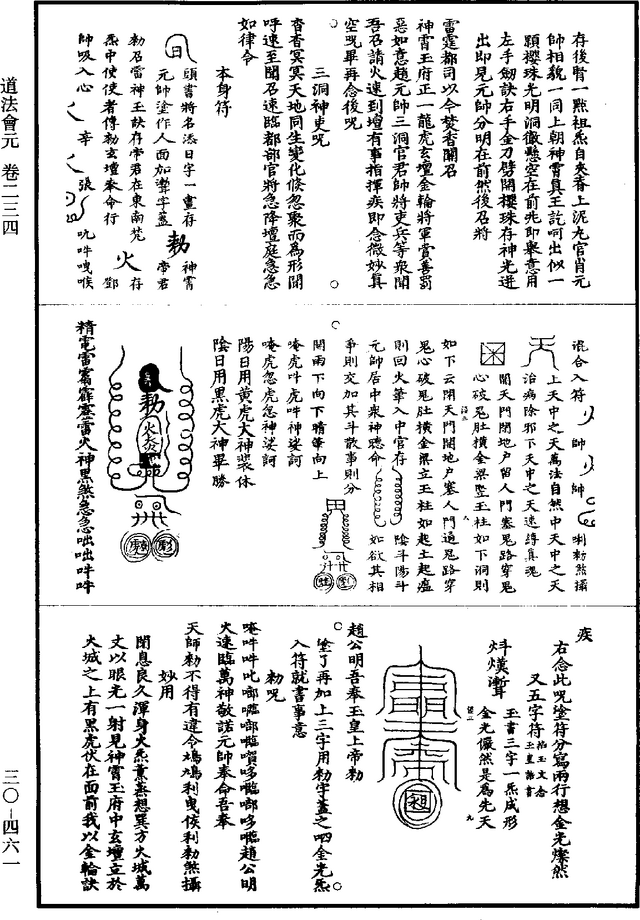 道法會元 卷二三四
三〇-四六一
存後腎一點祖炁自夾脊上泥丸宮肖元
帥相貌一同上朝神霄真王訖呵出似一
顆櫻珠光明洞徹懸空在前兆即舉意用
左手劒訣右手金刀劈開櫻珠存神光迸
出即見元帥分明在前然後召將
雷霆都司以今焚香關召
神霄玉府正一龍虎玄壇金輪將軍賞善罰
惡如意趙元帥三洞官君帥將吏兵等衆聞
吾召請火速到壇有事指揮疾即念微妙真
空咒畢再念後咒
三洞神吏咒
杳杳冥冥天地同生變化倏忽聚而為形聞
呼速至聞召速臨都部官將急降壇庭急急
如律令
本身符
頭書將名添日字一畫存
元帥塗作人面加灣字蓋
勑 神霄帝君
勑召雷神王訣存帝君在東南梵
炁中使使者傳勑玄壇奉命行
火 存鄧
師吸入心 辛 張 吽曳
混合入符 火 帥 火 帥 唎勑煞攝
上天中之天萬法自然中天中之天
治病除邪下天中之天速縛真魂
開天門閉地户留人門塞鬼路穿鬼
心破鬼肚橫金梁竪玉柱如下洞則
如下云閉天門開地户塞人門通鬼路穿
鬼心破鬼肚橫金梁立玉柱如起土起瘟
則回火筆入中宮存 陰斗陽斗
元帥居中衆神聽命 如欲其相
爭則交加其斗散事則分
開兩下向下晴筆向上
唵虎吽虎吽神娑訶
唵虎忽虎忽神娑訶
陽日用黄虎大神裴休
陰日用黑虎大神畢勝
勑
火炎
精電雷霹靂雷火神黑煞急急咄咄吽吽
疾
右念此咒塗符分寫兩行想金光燦然
又五字符
玉書三字一炁成形
金光儼然是為先天
祖
趙公明吾奉玉皇上帝勑
塗了再加上三字用勑字蓋之呬金光炁
入符就書事意
勑咒
唵吽吽吡唧囉唧囉嗊哆囉唧哆囉趙公明
火速臨萬神敬諾元帥奉命吾奉
天師勑不得有違令塢塢利曳俟利勑煞攝
妙用
閉息良久渾身火炁熏蒸想巽方火城萬
丈以眼光一射見神霄玉府中玄壇立於
火城之上有黑虎伏在面前我以金輪訣